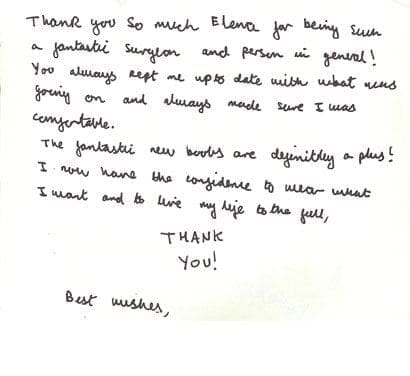 Thank you so much Elena for being such
a fantastic surgeon and person in general!
You always kept me up to date with what was
going on and always made sure I was
comfortable.
The fantastic new boobs are definitley a plus!
I now have the confidence to wear what
I want and to live my life to the full,
THANK
YOU!
Best wishes,